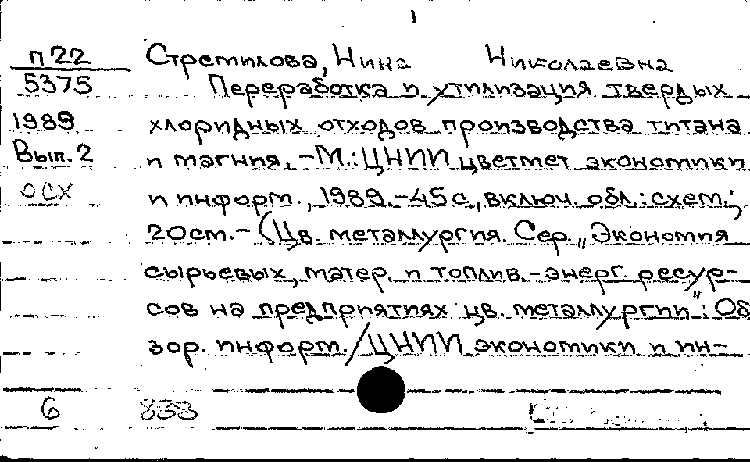 1
П22 Стремилова, Нина Николаевна
5375 Переработка и утилизация твердых
1989 хлоридных отходов производства титана
Вып. 2 и магния. – М.: ЦНИИ цветмет экономики
ОСХ и информ., 1989. – 45 с., включ. обл.: схем.;
20 см. – (Цв. металлургия. Сер. „Экономия
сырьевых, матер. и топлив.-энерг. ресур-
сов на предприятиях цв. металлургии": Об
зор. информ. / ЦНИИ экономики и ин-
6 833